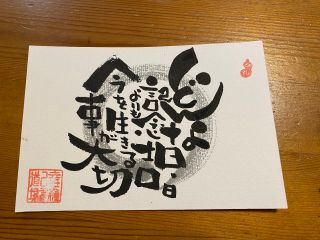 どんな
記念日
よりも
今を生きる
事が大切